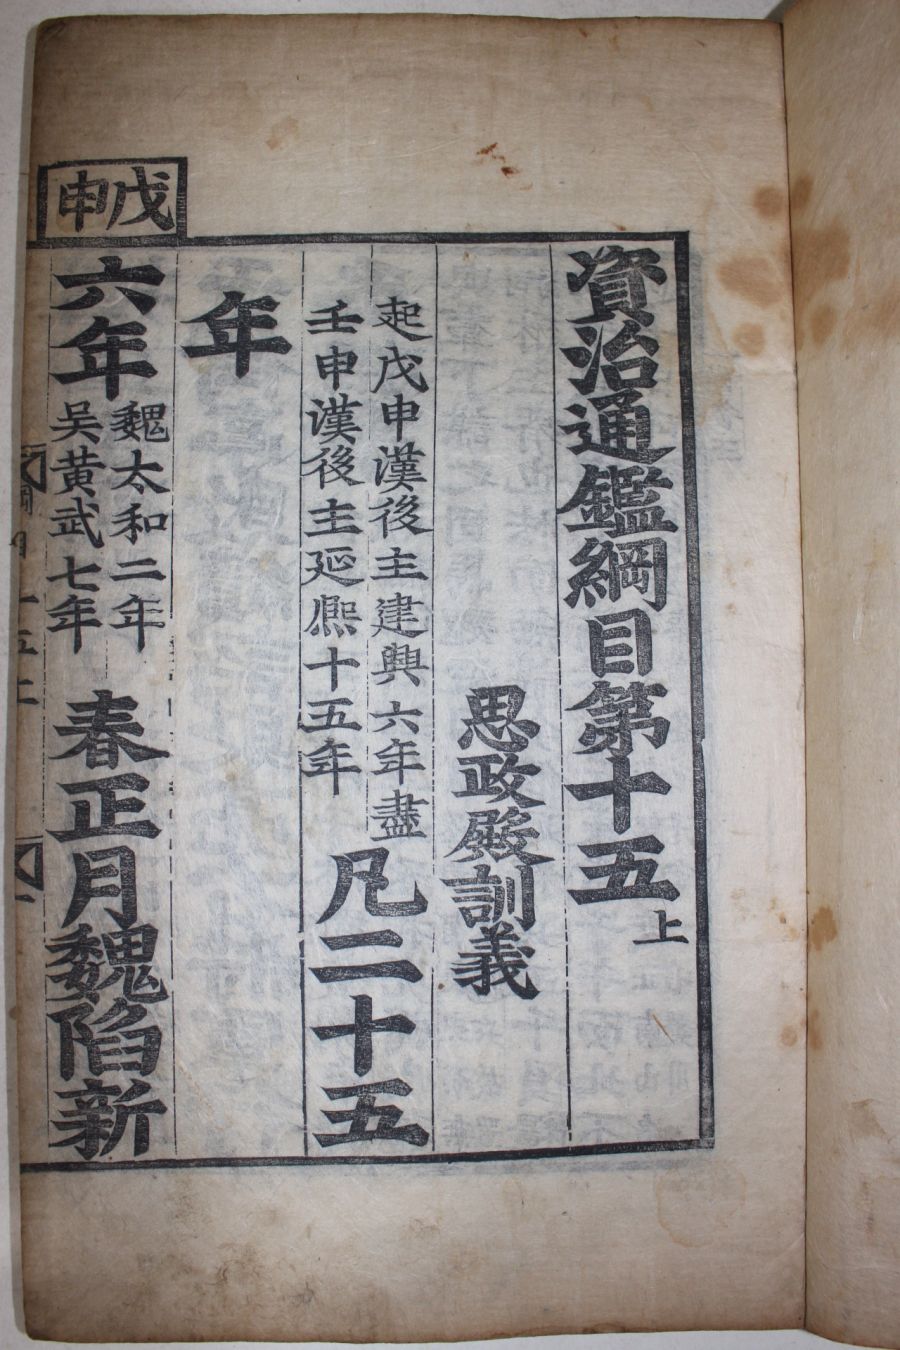 資治通鑑綱目第十五上
思政殿訓義
起戊申漢後主建興六年盡
壬申漢後主延熈十五年
凡二十五
年
戊申
六年
魏太和二年
吴黄武七年
春正月魏陷新